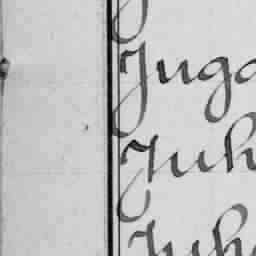 Juga
Juh
Juha